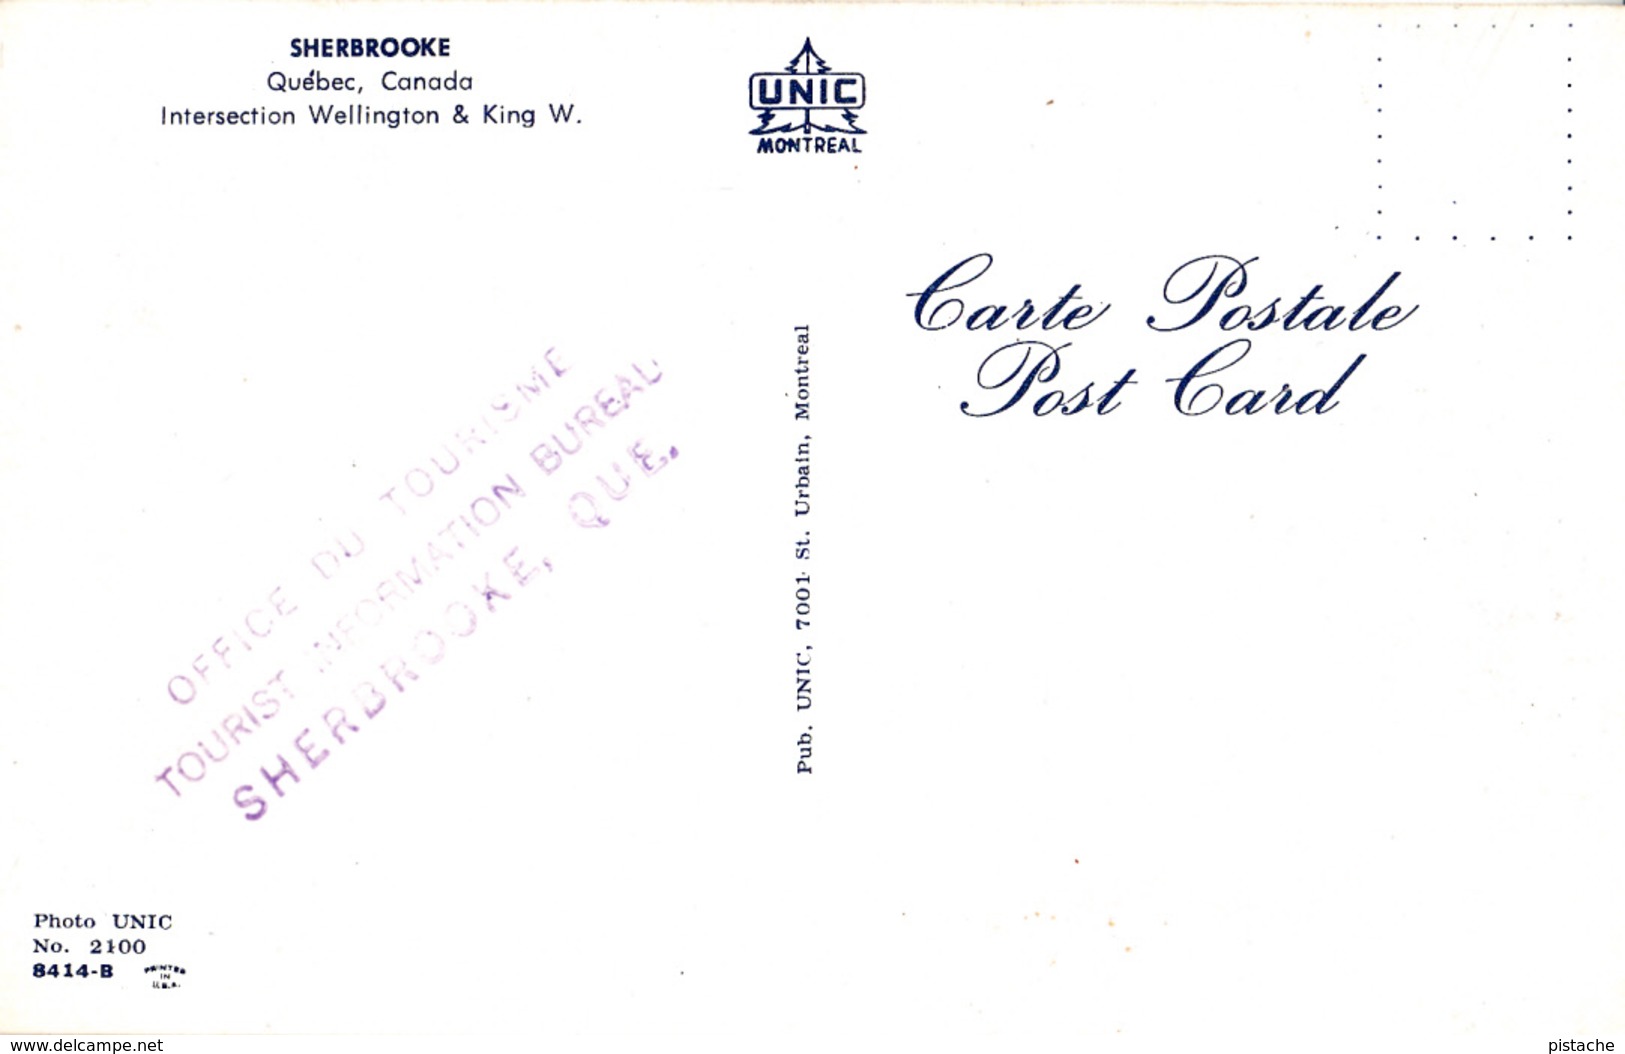 SHERBROOKE
Québec, Canada
Intersection Wellington & King W.
UNIC
MONTREAL
Carte Postale
Post Card
Pub. UNIC, 7001 St. Urbain, Montreal
OFFICE DU TOURISME
TOURIST INFORMATION BUREAU
SHERBROOKE, QUE.
Photo UNIC
No. 2100
8414-B
PRINTED
IN
U.S.A.
www.delcampe.net
pistache